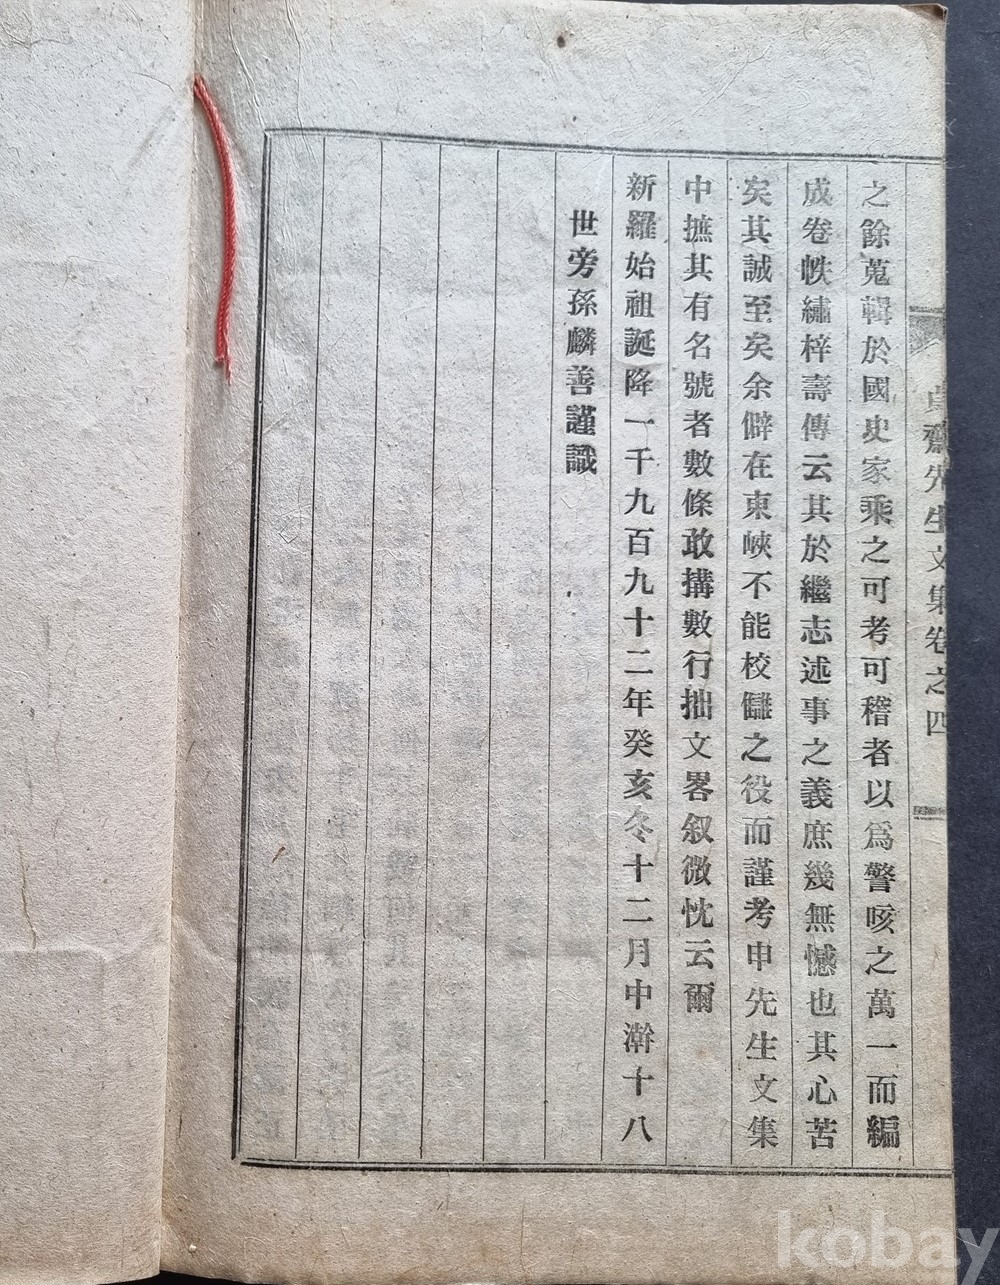 貞齋先生文集卷之四
之餘蒐輯於國史家乘之可考可稽者以爲警咳之萬一而編
成卷帙繡梓壽傳云其於繼志述事之義庶幾無憾也其心苦
矣其誠至矣余僻在東峽不能校讎之役而謹考申先生文集
中摭其有名號者數條敢搆數行拙文畧叙微忱云爾
新羅始祖誕降一千九百九十二年癸亥冬十二月中澣十八
世旁孫麟善謹識
kobay